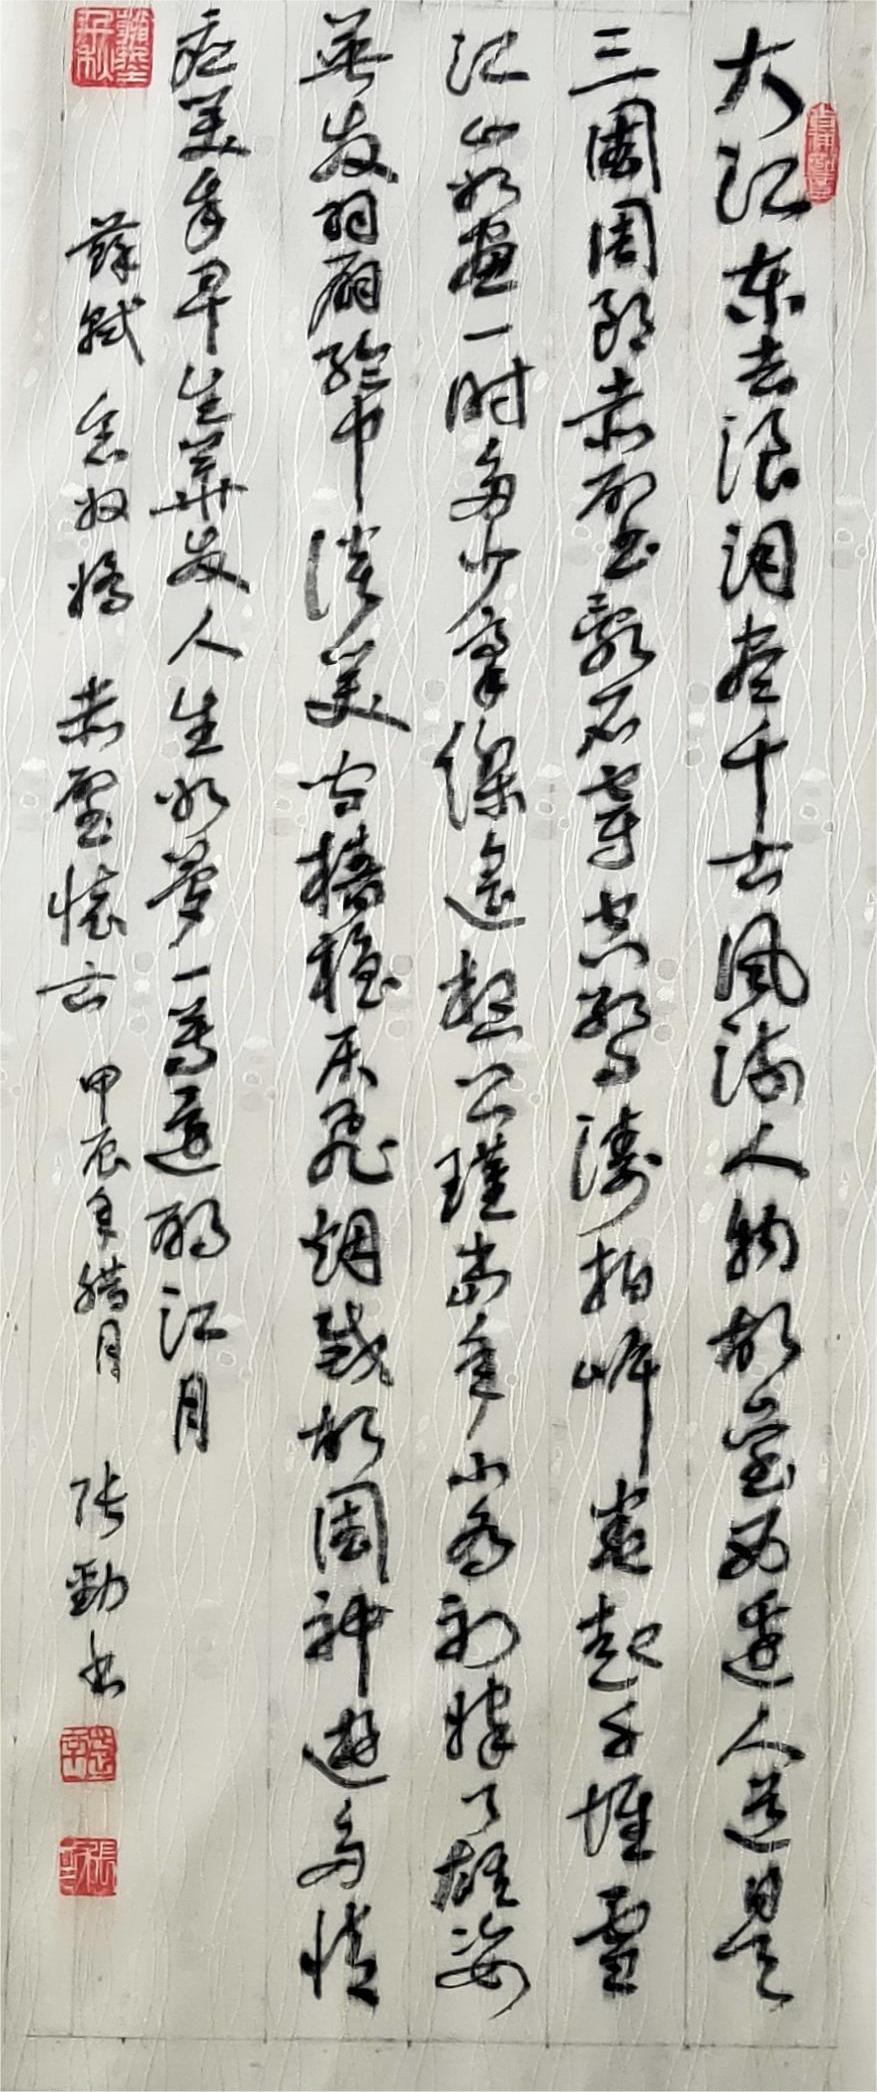 大江东去浪淘尽千古风流人物故垒西边人道是
三国周郎赤壁乱石穿空惊涛拍岸卷起千堆雪
江山如画一时多少豪傑遥想公瑾当年小乔初嫁了雄姿
英发羽扇纶巾谈笑间樯橹灰飞烟灭故国神遊多情
应笑我早生华发人生如梦一尊还酹江月
蘇軾 念奴娇 赤壁懷古 甲辰年腊月 张勁书